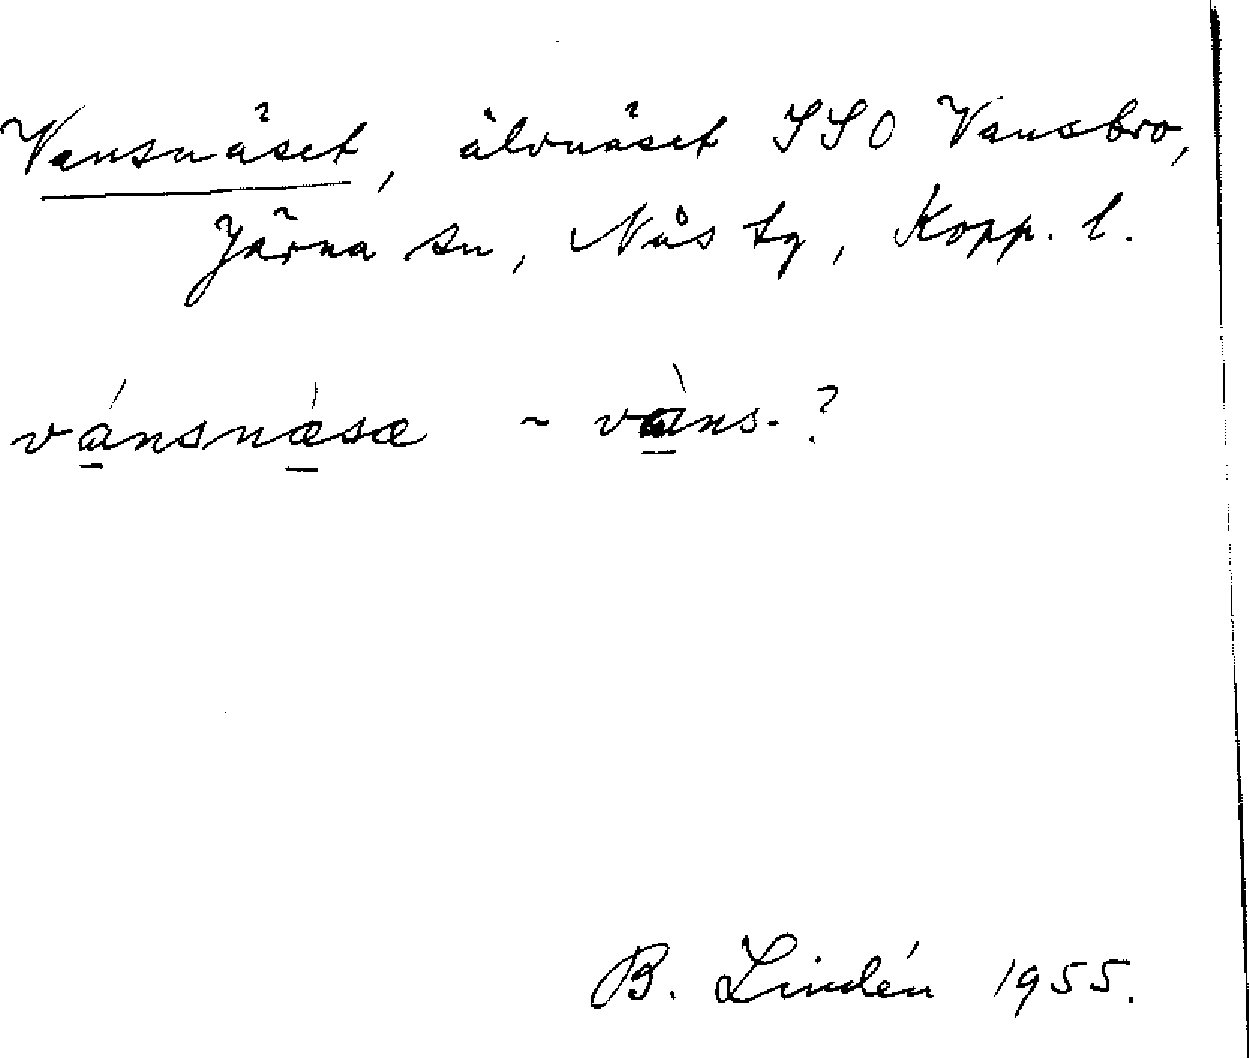 Vansnäset, älvnäset SSO Vansbro,
Järna sn, Nås tg, Kopp. l.
vánsnǽsæ ~ vàns-?
B. Lindén 1955.